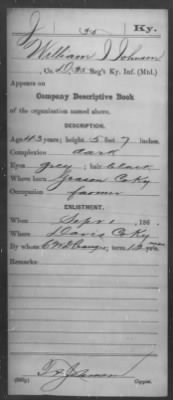 J 35 Ky.
William J Johnson
, Co. D, 35 Reg't Ky. Inf. (Mtd.)
Appears on
Company Descriptive Book
of the organization named above.
DESCRIPTION.
Age 43 years; height 5 feet 7 inches.
Complexion dark
Eyes grey; hair black
Where born Grason Co Ky
Occupation farmer
ENLISTMENT.
When Sept 1, 186 .
Where Davis Co Ky
By whom; term 12 mos
Remarks:
Copyist.